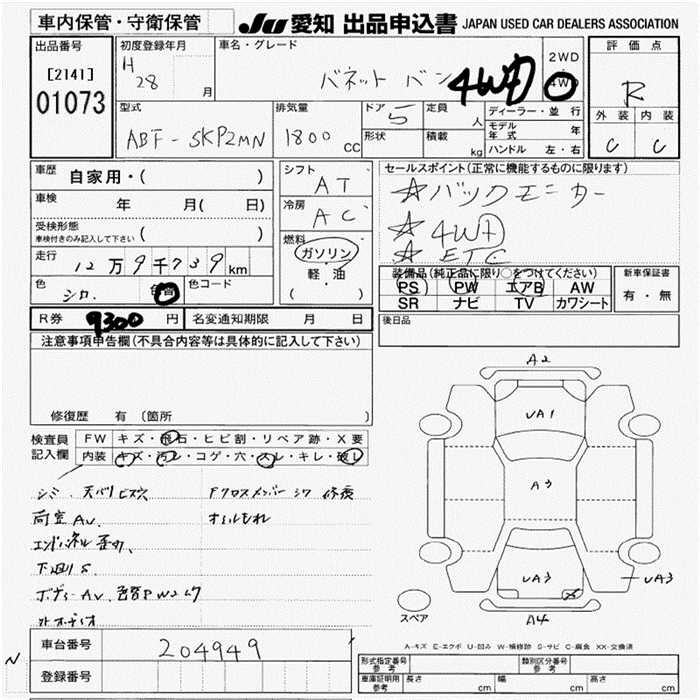 車内保管・守衛保管
JU 愛知 出品申込書 JAPAN USED CAR DEALERS ASSOCIATION
出品番号
[2141]
01073
初度登録年月
H
28
月
車名・グレード
バネット バン 4WD
2WD
4WD
評価点
R
外装 内装
C C
型式
ABF-SKP2MN
排気量
1800 CC
ドア 5
形状
定員 人
積載 kg
ディーラー・並行
モデル年式 年
ハンドル 左・右
車歴 自家用・( )
車検 年 月( 日)
受検形態
車検付きのみ記入して下さい ( )
走行
12万9千739km
色 シロ
色コード
シフト
AT
冷房
AC
燃料
ガソリン
軽・油
( )
セールスポイント(正常に機能するものに限ります)
☆バックモニター
☆4WD
☆ETC
装備品(純正品に限り○をつけてください)
PS PW エアB AW
SR ナビ TV カワシート
新車保証書
有・無
R券 9300 円
名変通知期限 月 日
後日品
注意事項申告欄(不具合内容等は具体的に記入して下さい)
修復歴 有 (箇所
検査員
記入欄
FW キズ・飛石・ヒビ割・リペア跡・X要
内装 キズ・汚レ・コゲ・穴・スレ・キレ・破レ
シミ、天バリビス穴
荷室AV.
エンドパネル歪み、
下廻りS
ボディーAV.
社外オーディオ
Fクロスメンバー シワ 修復
オイルもれ
A2
UA1
A3
UA3
UA3
A4
スペア
A-キズ E-エクボ U-凹み W-補修跡 S-サビ C-腐食 XX-交換済
車台番号
204949
登録番号
N
形式指定番号
参考
類別区分番号
参考
車庫証明用
参考
長さ cm
幅 cm
高さ cm